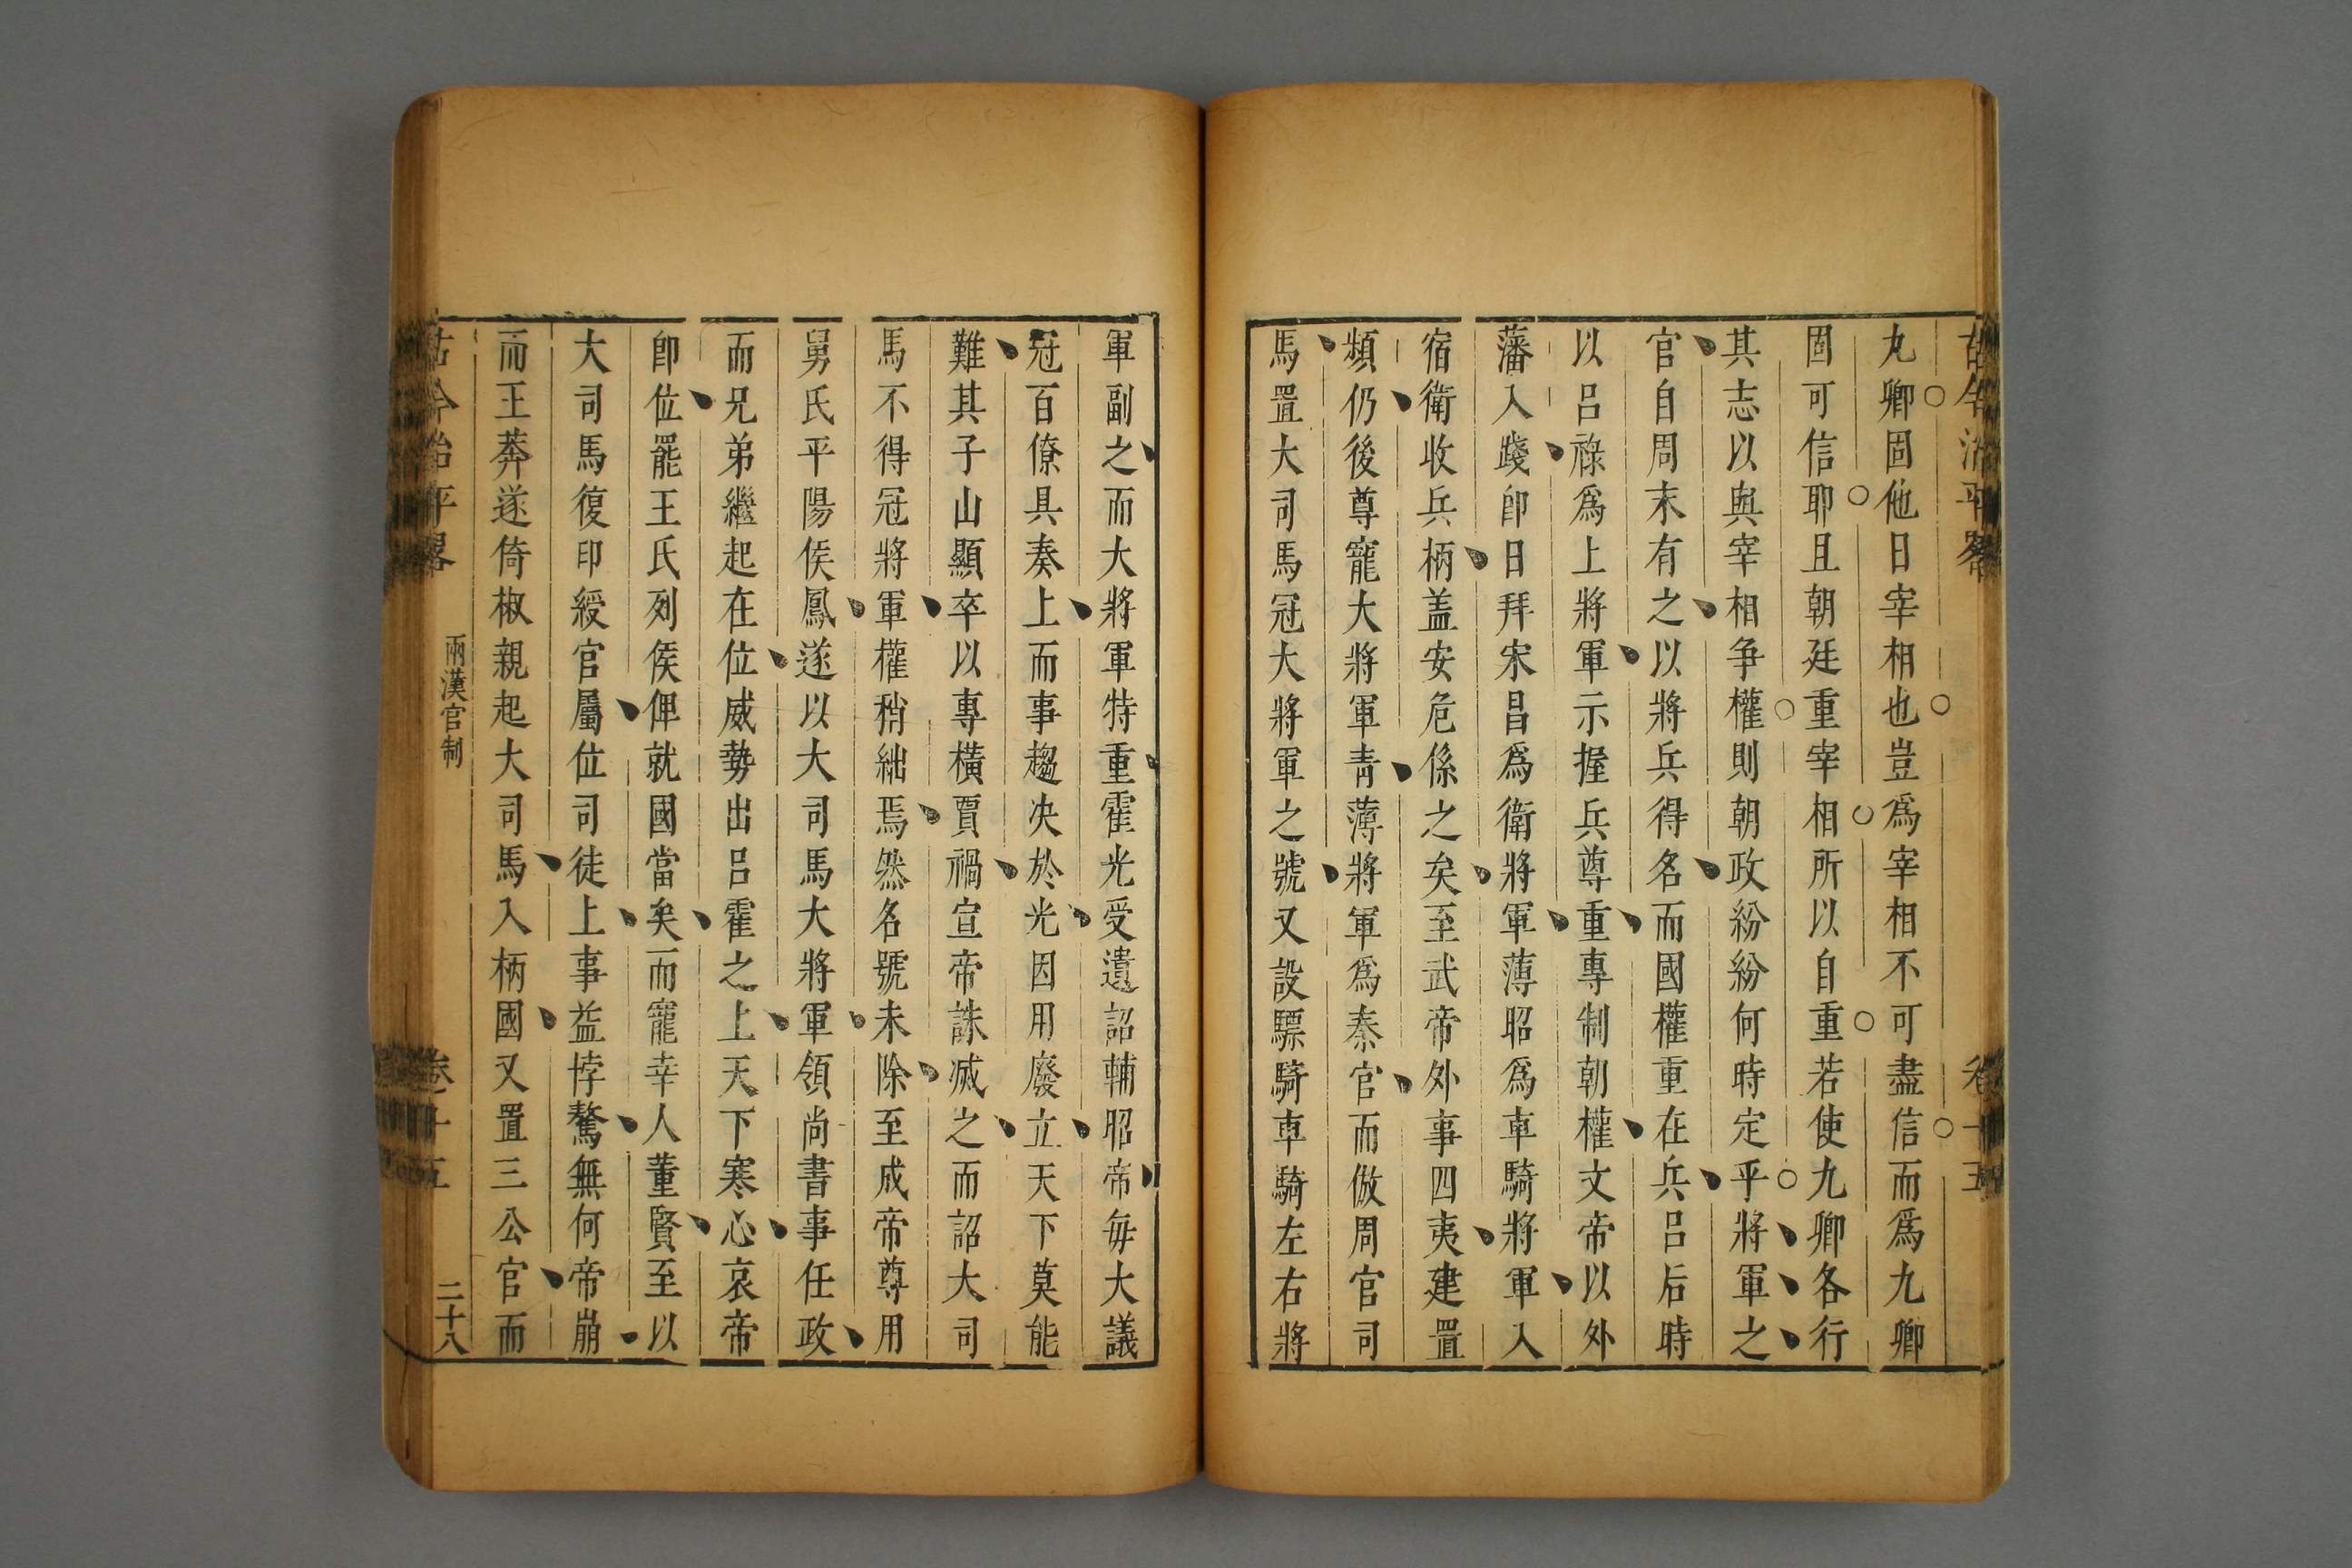 古今治平畧 卷十五
九卿固他日宰相也豈爲宰相不可盡信而爲九卿
固可信耶且朝廷重宰相所以自重若使九卿各行
其志以與宰相争權則朝政紛紛何時定乎將軍之
官自周末有之以將兵得名而國權重在兵吕后時
以吕祿爲上將軍示握兵尊重專制朝權文帝以外
藩入踐即日拜宋昌爲衛將軍薄昭爲車騎將軍入
宿衛收兵柄盖安危係之矣至武帝外事四夷建置
頻仍後尊寵大將軍青薄將軍爲秦官而倣周官司
馬置大司馬冠大將軍之號又設驃騎車騎左右將
軍副之而大將軍特重霍光受遺詔輔昭帝每大議
冠百僚具奏上而事趨决於光因用廢立天下莫能
難其子山顯卒以專橫賈禍宣帝誅滅之而詔大司
馬不得冠將軍權稍絀焉然名號未除至成帝尊用
舅氏平陽侯鳳遂以大司馬大將軍領尚書事任政
而兄弟繼起在位威勢出吕霍之上天下寒心哀帝
即位罷王氏列侯俾就國當矣而寵幸人董賢至以
大司馬復印綬官屬位司徒上事益悖驁無何帝崩
而王莽遂倚椒親起大司馬入柄國又置三公官而
古今治平畧 兩漢官制 卷十五 二十八